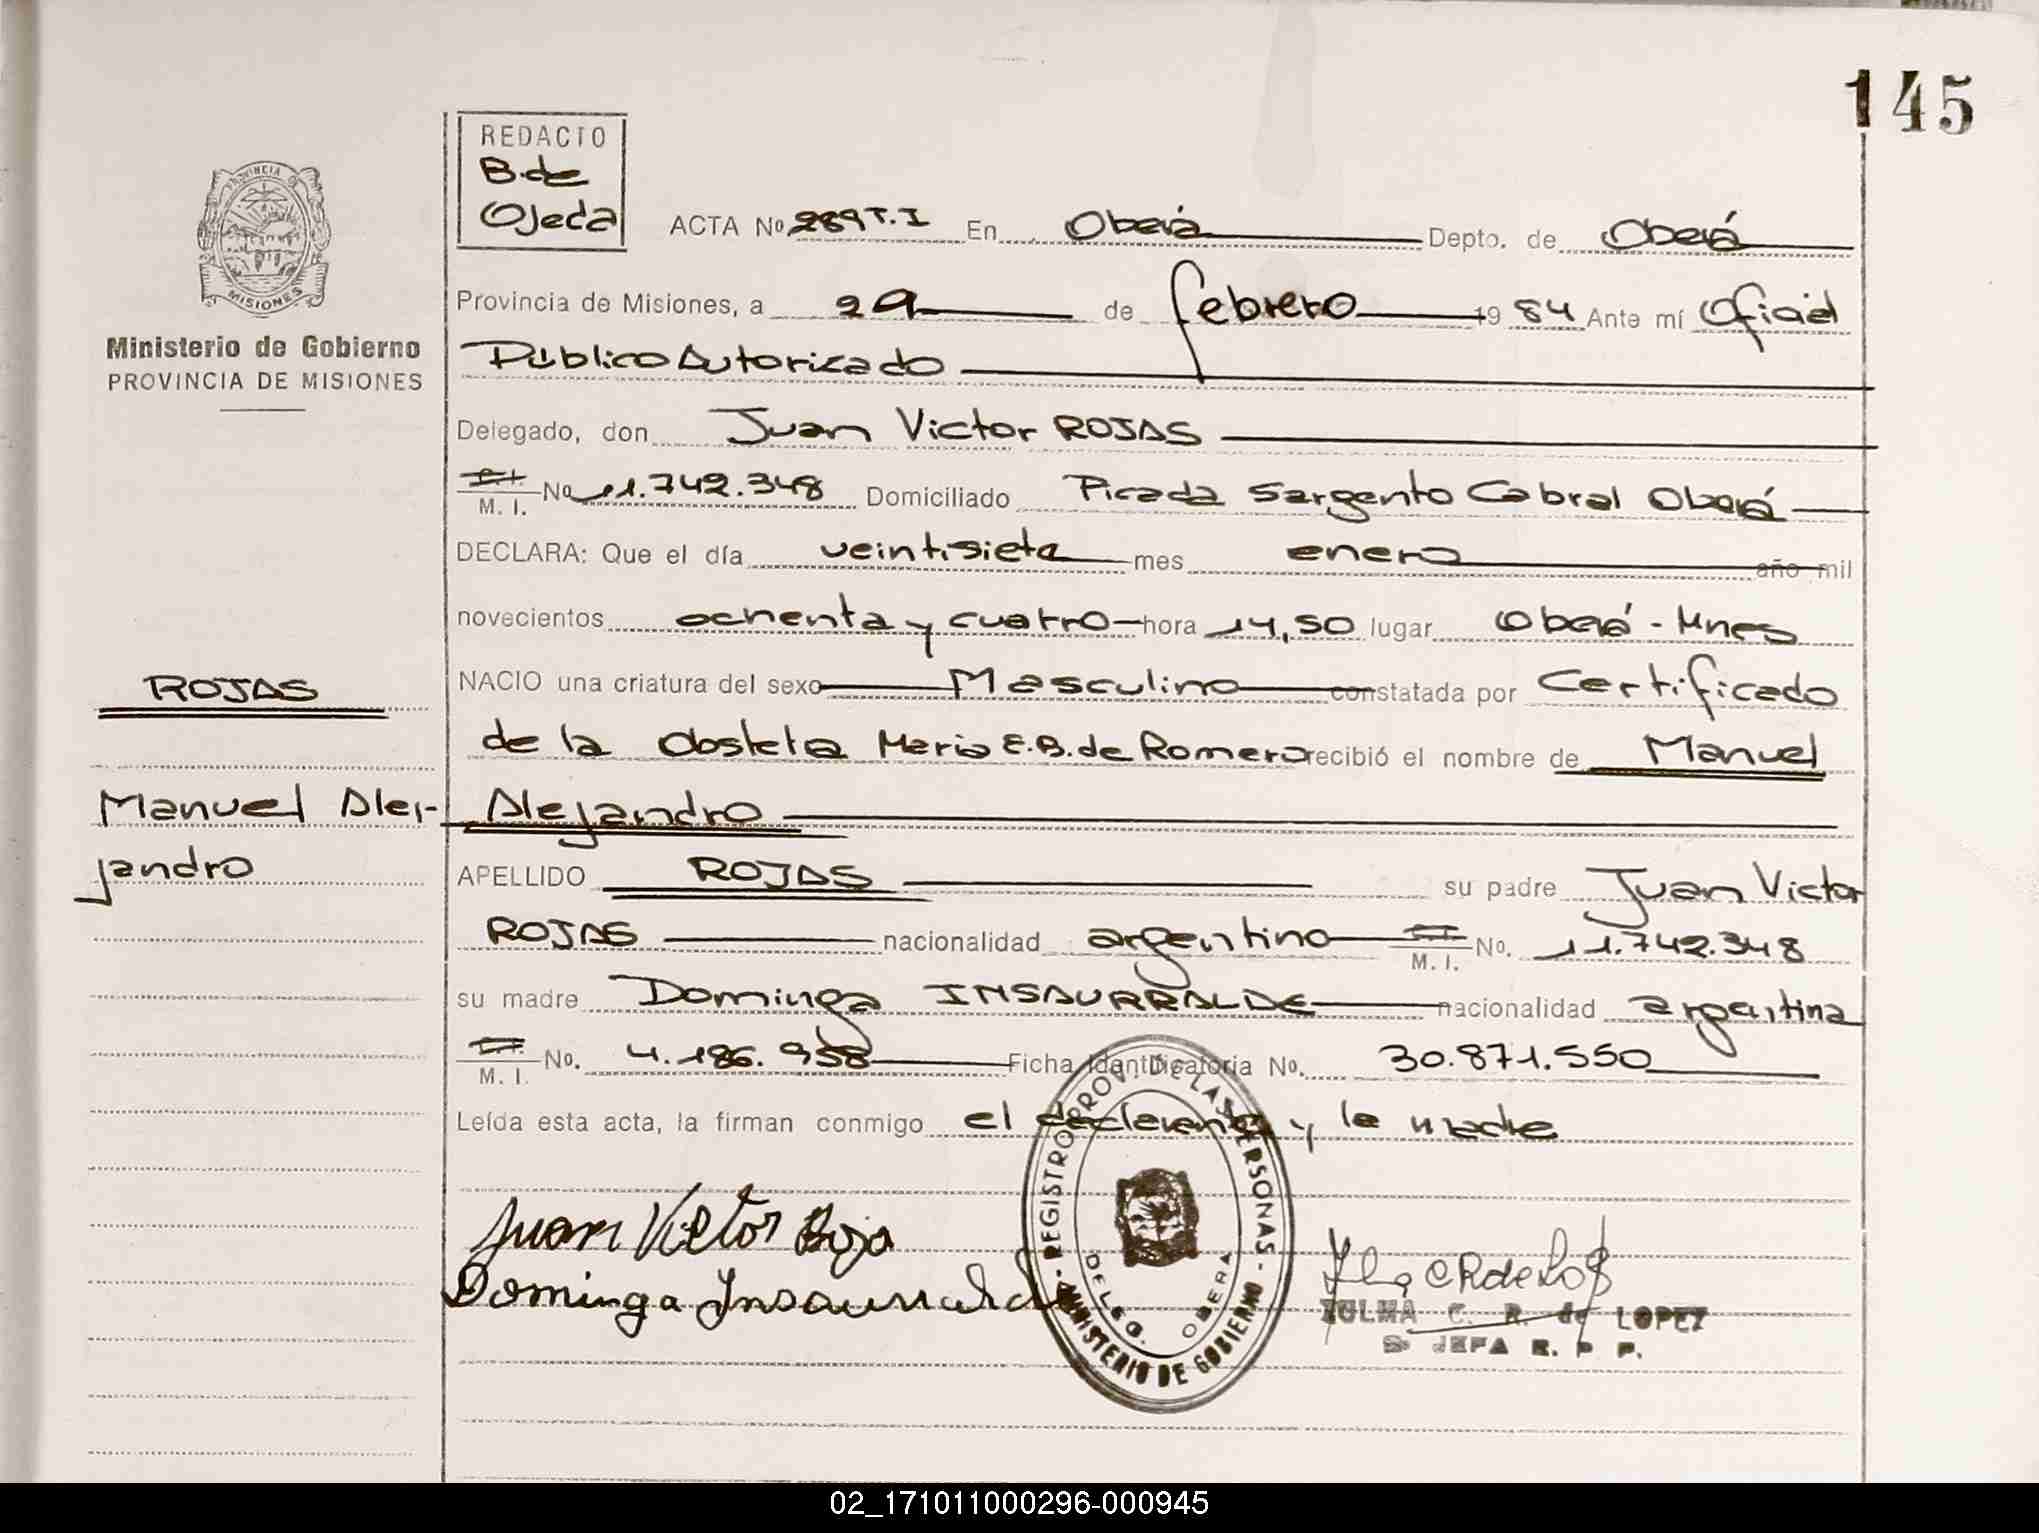 145
REDACTO
B. de
Ojeda
ACTA No 289 T. I En Oberá Depto. de Oberá
PROVINCIA DE
MISIONES
Ministerio de Gobierno
PROVINCIA DE MISIONES
Provincia de Misiones, a 29 de febrero 1984 Ante mí Oficial
Público Autorizado
Delegado, don Juan Victor ROJAS
M. I. No 11.742.348 Domiciliado Picada Sargento Cabral Oberá
DECLARA: Que el día veintisiete mes enero año mil
novecientos ochenta y cuatro hora 14,50 lugar Oberá - Mnes
NACIO una criatura del sexo Masculino constatada por Certificado
de la Obstetra Maria E. B. de Romero recibió el nombre de Manuel
Alejandro
ROJAS
Manuel Alei-
jandro
APELLIDO ROJAS su padre Juan Victor
ROJAS nacionalidad argentino M. I. No. 11.742.348
su madre Dominga INSAURRALDE nacionalidad argentina
M. I. No. 4.186.958 Ficha Identificatoria No. 30.871.550
Leída esta acta, la firman conmigo el declarante y la madre
Juan Victor Roja
Dominga Insaurralde
REGISTRO PROV. DE LAS PERSONAS - MINISTERIO DE GOBIERNO -
DELEG. OBERA
ZULMA C. R. de LOPEZ
S. JEFA R. P. P.
02_171011000296-000945